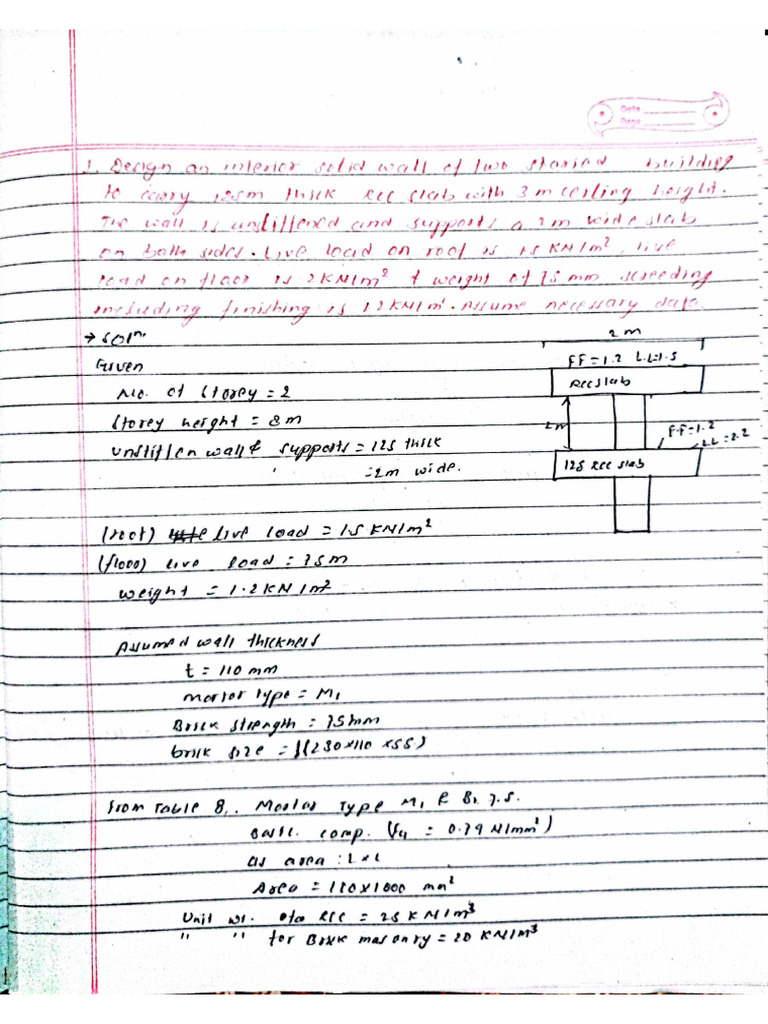 Date
Page
1. Design an interior solid wall of two storied building
to carry 125m thick RCC slab with 3m ceiling height.
The wall is unstiffened and supports a 2m wide slab
on both sides. Live load on roof is 1.5 KN/m², live
load on floor is 2KN/m² & weight of 75 mm screeding
including finishing is 1.2KN/m². Assume necessary data.
→ solⁿ.
Given
No. of storey = 2
Storey height = 3m
unstiffen wall & supports = 125 thick
= 2m wide.
2m
FF = 1.2 L.L=1.5
RCC slab
2m
F.F=1.2
L.L=2.2
125 RCC slab
(root) live load = 1.5 KN/m²
(floor) live load = 75m
weight = 1.2 KN/m²
Assumed wall thickness
t = 110 mm
mortor type = M₁
Brick strength = 75mm
brick size = (230×110×55)
from Table 8, Mortar Type M₁ & 7.5.
Basic comp. = 0.74 N/mm²)
as area
Area = 110×1000 mm²
Unit wt. RCC = 25 KN/m³
" " for Brick masonry = 20 KN/m³